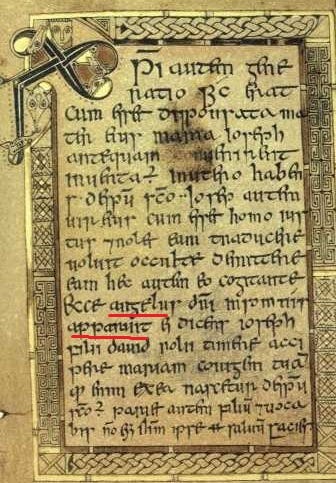 XPI autem gene
ratio sic erat
cum esset disponsata ma
ter eius maria ioseph
antequam conuenirent
inuenta ÷ in utero habens
de spu sco ioseph autem
uir eius cum esset homo ius
tus 7 nolle eam traducere
uoluit occulte dimittere
eam hec autem eo cogitante
ecce angelus dni in somnis
apparuit ei dicens ioseph
fili dauid noli timere acci
pere mariam coniugem tuā
enim ex ea nascetur de spu
sco pariet autem filium 7 uoca
bis ihm ipse saluum faciet